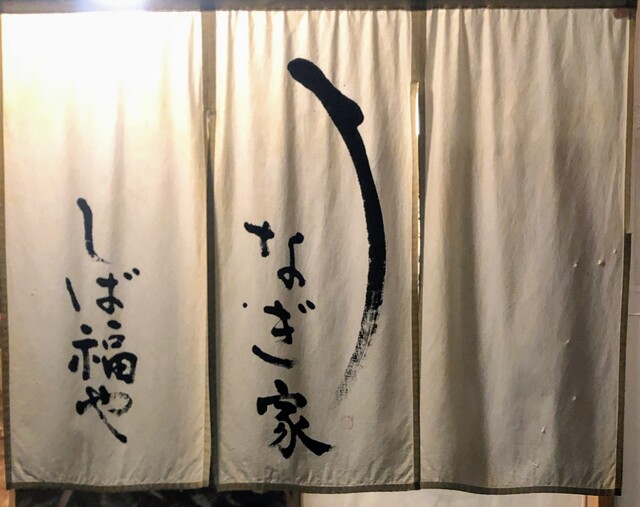 うなぎ家
しば福や